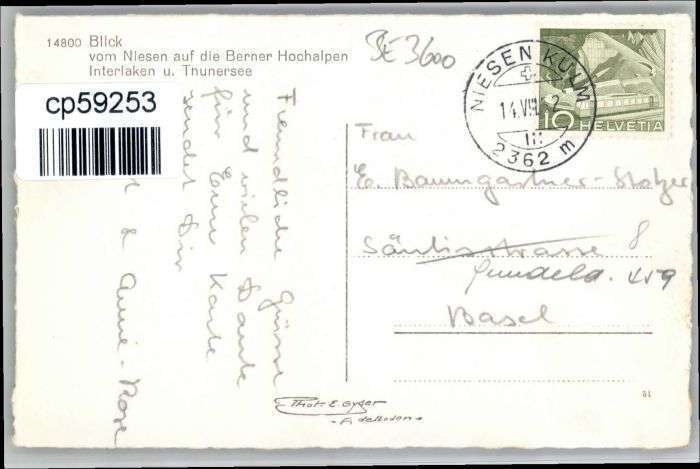 14800 Blick
vom Niesen auf die Berner Hochalpen
Interlaken u. Thunersee
BE 3600
cp59253
NIESEN KULM
14.VIII. 2
2362 m
10 HELVETIA
Freundliche Grüsse
und vielen Dank
für Eure Karte
sendet Dir
& Anne-Rose
Frau
E. Baumgartner-Stolzer
Säntisstrasse 8
Gundeld. 459
Basel
Phot. E. Gyger
Adelboden
51